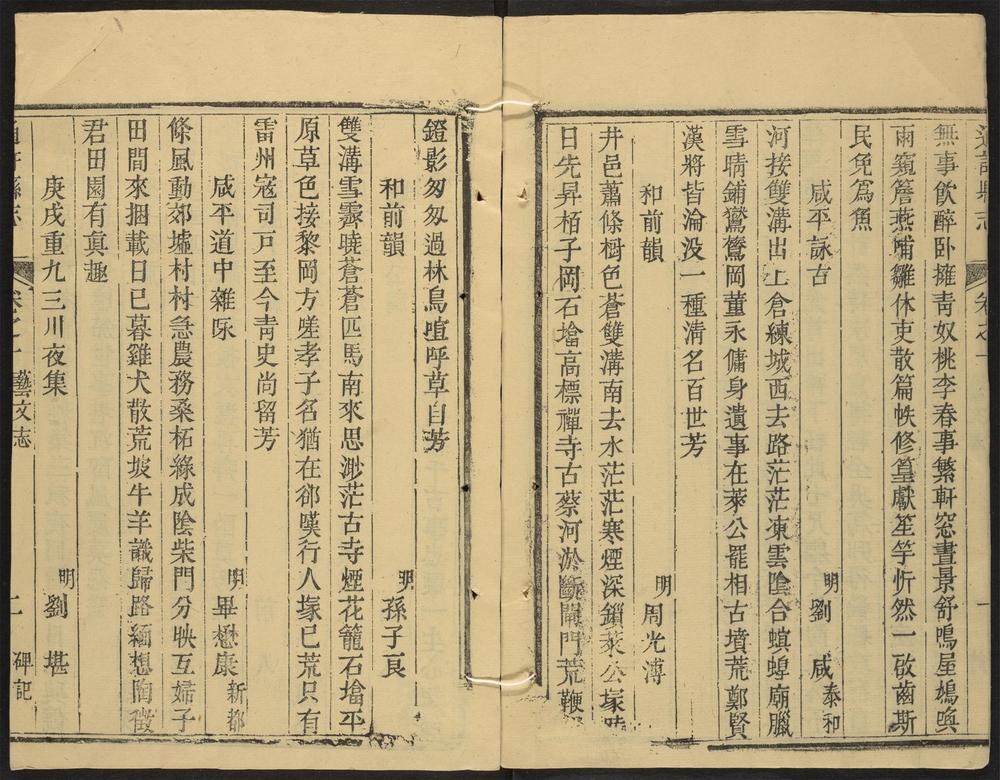 通許縣志 卷之一 一
無事飲醉卧擁青奴桃李春事繁軒窓晝景舒鳴屋鳩喚
雨窺簷燕哺雛休吏散篇帙修篁獻笙竽忻然一啟齒斯
民免爲魚
咸平詠古 明劉 咸泰和
河接雙溝出上倉練城西去路茫茫凍雲陰合螥蝗廟臘
雪晴鋪鴛鴦岡董永傭身遺事在萊公罷相古墳荒鄭賢
漢將皆淪没一種淸名百世芳
和前韻 明周光溥
井邑蕭條樹色蒼雙溝南去水茫茫寒煙深鎖萊公塚
日先昇栢子岡石墖高標禪寺古蔡河淤斷閘門荒鞭
鐙影匆匆過林鳥喧呼草自芳
和前韻 明孫子良
雙溝雪霽曉蒼蒼匹馬南來思渺茫古寺煙花籠石墖平
原草色接黎岡方嗟孝子名猶在却嘆行人塚已荒只有
雷州寇司戸至今靑史尚留芳
咸平道中雜咏 明畢懋康新都
條風動郊墟村村急農務桑柘綠成陰柴門分映互婦子
田間來捆載日已暮雞犬散荒坡牛羊識歸路緬想陶徵
君田園有真趣
庚戌重九三川夜集 明劉 堪
通許縣志 卷之一 藝文志 二 碑記